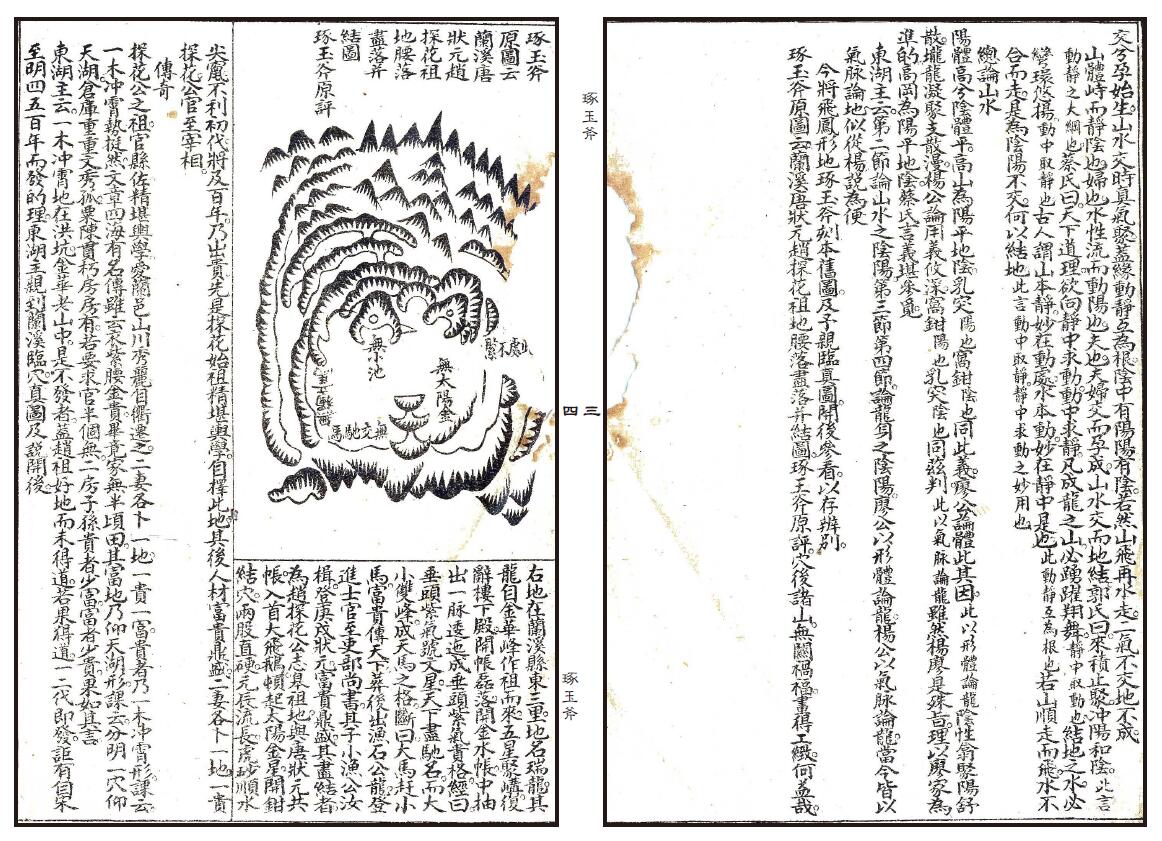 交兮孕始生山水交時真氣聚蓋緣動靜互為根陰中有陽陽有陰若然山飛再水走二氣不交地不成
山體峙而靜陰也婦也水性流而動陽也夫也夫婦交而孕成山水交而地結郭氏曰來積止聚沖陽和陰此言
動靜之大綱也蔡氏曰天下道理欲向靜中求動動中求靜凡成龍之山必踴躍翔舞靜中取動也結地之水必
灣環悠揚動中取靜也古人謂山本靜妙在動處水本動妙在靜中是也此動靜互為根也若山順走而飛水不
合而走是為陰陽不交何以結地此言動中取靜靜中求動之妙用也
總論山水
陽體高兮陰體平高山為陽平地陰乳突陽也窩鉗陰也同此義廖公論體此其因此以形體論龍陰性翕聚陽舒
散壠龍凝聚支散漫楊公論用義攸深窩鉗陽也乳突陰也同茲判此以氣脉論龍雖然楊廖是殊旨理以廖家為
進的高岡為陽平地陰蔡氏言義堪參覓
東湖主云第二節論山水之陰陽第三節第四節論龍身之陰陽廖公以形體論龍楊公以氣脉論龍當今皆以
氣脉論地似從楊說為便
今將飛鳳形地琢玉斧刻本舊圖及予親臨真圖開後參看以存辨別
琢玉斧原圖云蘭溪唐狀元趙探花祖地腰落盡落并結圖琢玉斧原評穴後諸山無關禍福畫得工緻何益哉
琢玉斧
三四
琢玉斧
琢玉斧
原圖云
蘭溪唐
狀元趙
探花祖
地腰落
盡落并
結圖
琢玉斧原評
此處不緊
無太陽金
無小池
無交馳馬
右地在蘭溪縣東三里地名瑞龍其
龍自金華峰作祖而來五星聚嶹復
辭樓下殿開帳磊落開金水帳中抽
出一脉逶迤成垂頭紫氣貴格經曰
垂頭紫氣號文星天下盡馳名而大
小雙峰成天馬之格斷曰大馬赶小
馬富貴傳天下葬後出漁石公龍登
進士官至吏部尚書其子小漁公汝
楫登庚戌狀元富貴鼎盛其盡結者
為趙探花公志皋祖地與唐狀元共
帳入首大飛鵝頓起太陽金星開鉗
結穴兩股直硬元辰流長虎砂順水
尖竄不利初代將及百年乃出貴先是探花始祖精堪輿學自擇此地其後人材富貴鼎盛二妻各卜一地一貴
探花公官至宰相
傳奇
探花公之祖官縣佐精堪輿學愛蘭邑山川秀麗自衢遷之二妻各卜一地一貴一富貴者乃一木沖霄形課云
一木冲霄勢挺然文章四海有名傳雖云衣紫腰金貴畢竟家無半頃田其富地乃仰天湖形課云分明一穴仰
天湖倉庫重重文秀孤粟陳貫朽房房有若要求官半個無二房子孫貴者少富富者少貴果如其言
東湖主云一木冲霄地在洪坑金華老山中是不發者蓋趙祖好地而未得道若果得道一二代即發詎有自宋
至明四五百年而發的理東湖主親到蘭溪臨穴真圖及說開後